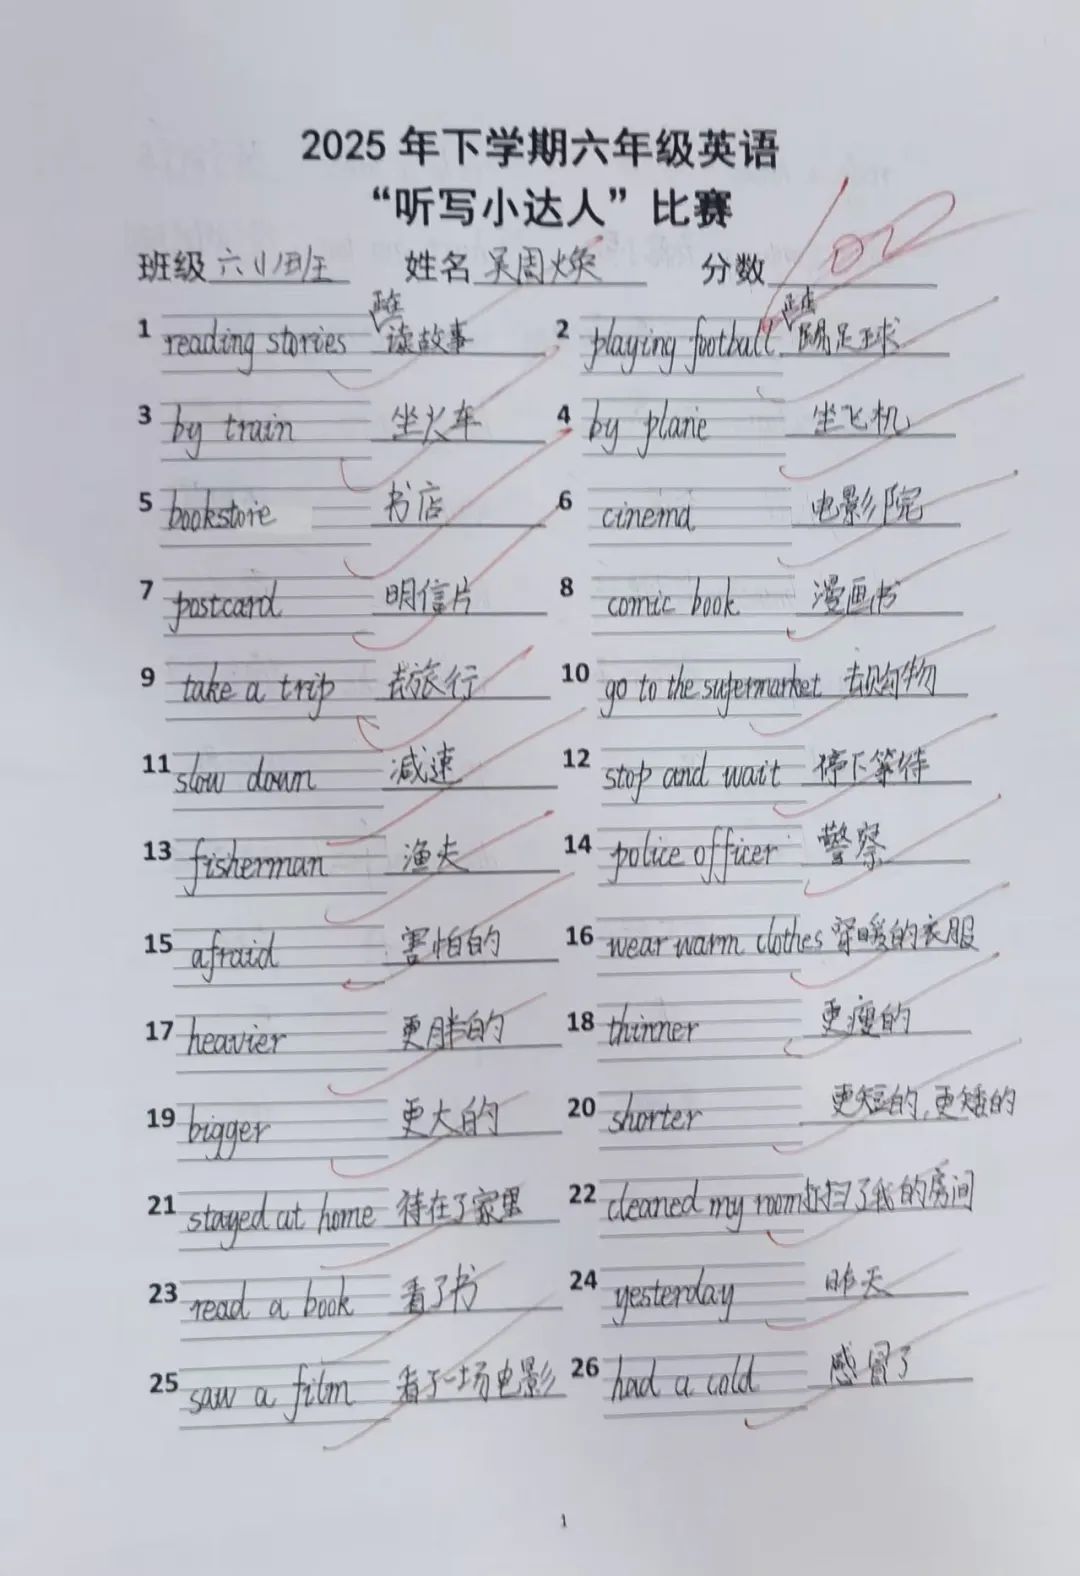 2025 年下学期六年级英语
“听写小达人”比赛
班级 六(1)班 姓名 吴周焕 分数 100
1 reading stories 正在读故事 2 playing football 正在踢足球
3 by train 坐火车 4 by plane 坐飞机
5 bookstore 书店 6 cinema 电影院
7 postcard 明信片 8 comic book 漫画书
9 take a trip 去旅行 10 go to the supermarket 去购物
11 slow down 减速 12 stop and wait 停下等待
13 fisherman 渔夫 14 police officer 警察
15 afraid 害怕的 16 wear warm clothes 穿暖的衣服
17 heavier 更胖的 18 thinner 更瘦的
19 bigger 更大的 20 shorter 更短的,更矮的
21 stayed at home 待在了家里 22 cleaned my room 打扫了我的房间
23 read a book 看了书 24 yesterday 昨天
25 saw a film 看了一场电影 26 had a cold 感冒了
1